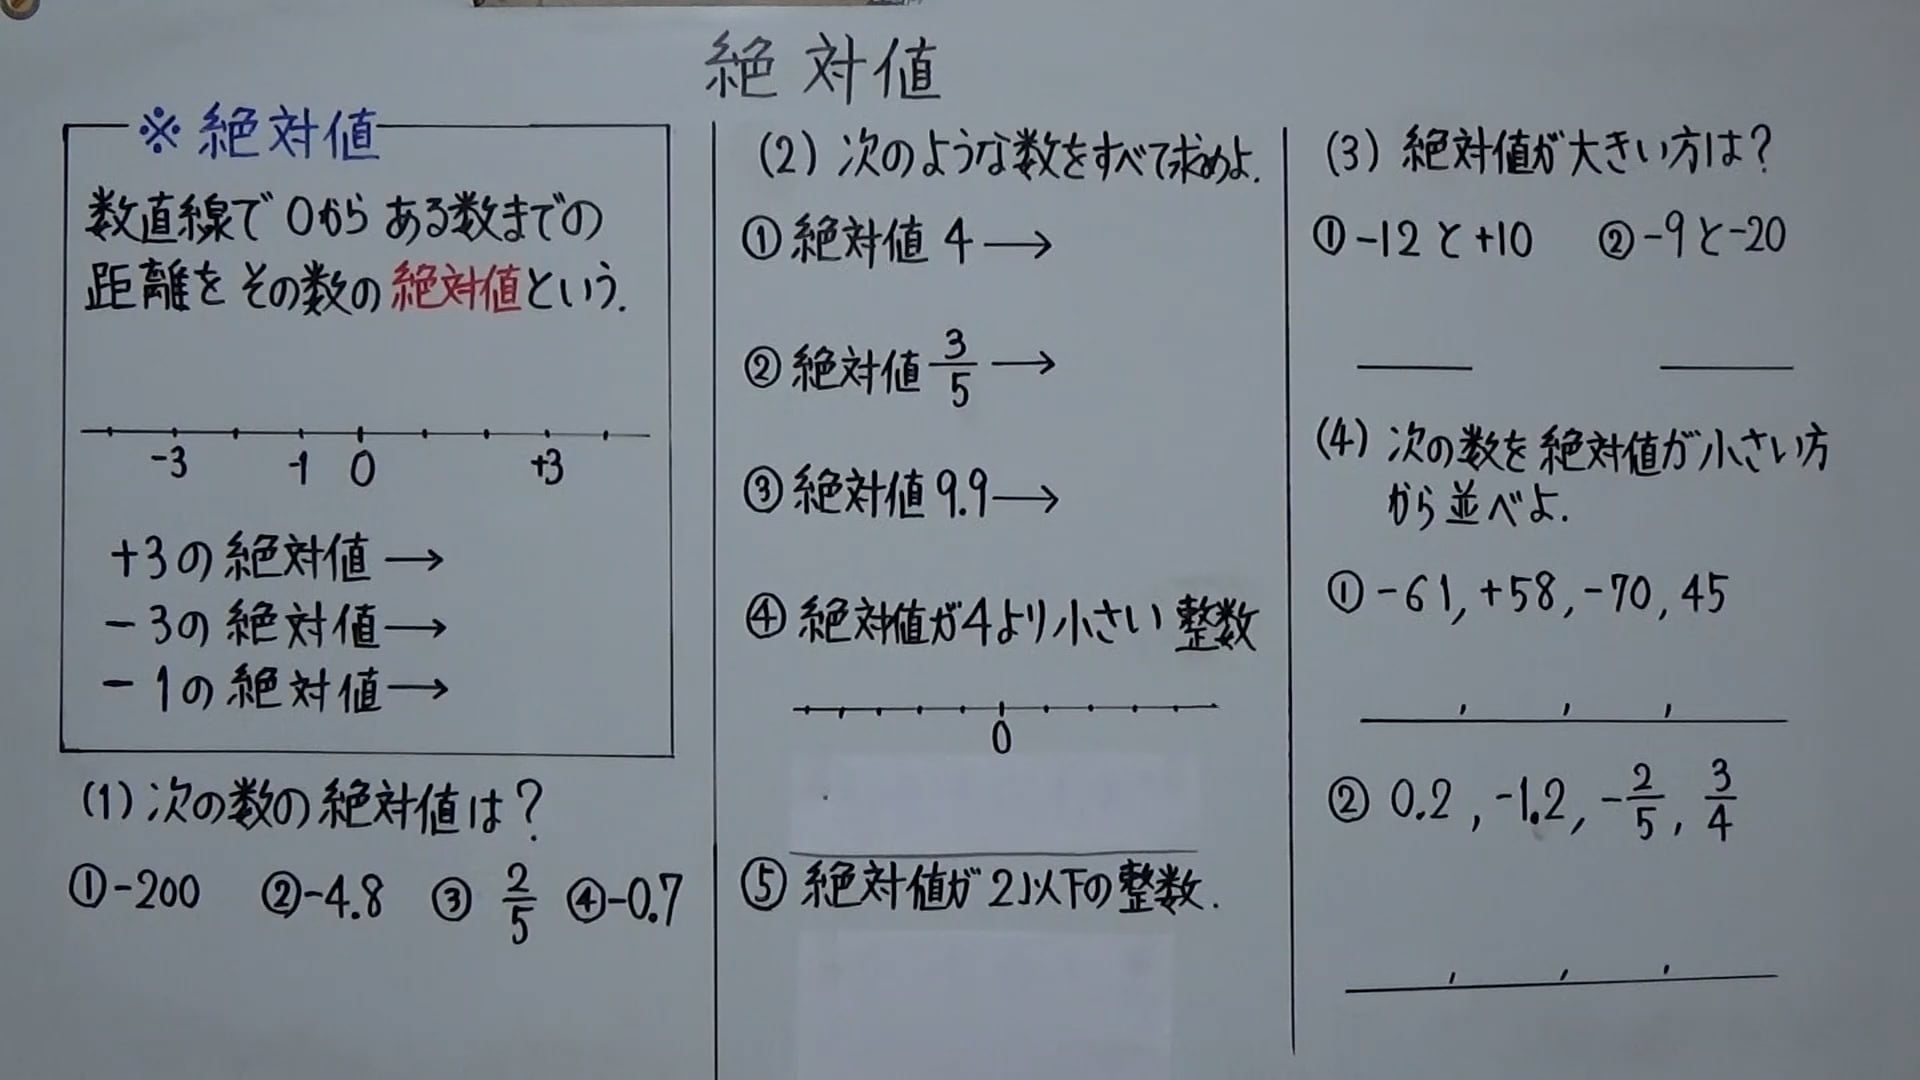 絶対値
※絶対値
数直線で0からある数までの
距離をその数の絶対値という.
-3 -1 0 +3
+3の絶対値→
-3の絶対値→
-1の絶対値→
(1) 次の数の絶対値は?
①-200 ②-4.8 ③ 2/5 ④-0.7
(2) 次のような数をすべて求めよ.
① 絶対値 4→
② 絶対値 3/5→
③ 絶対値 9.9→
④ 絶対値が4より小さい整数
0
⑤ 絶対値が2以下の整数.
(3) 絶対値が大きい方は?
①-12と+10 ②-9と-20
(4) 次の数を絶対値が小さい方
から並べよ.
①-61, +58, -70, 45
, , ,
② 0.2, -1.2, -2/5, 3/4
, , ,